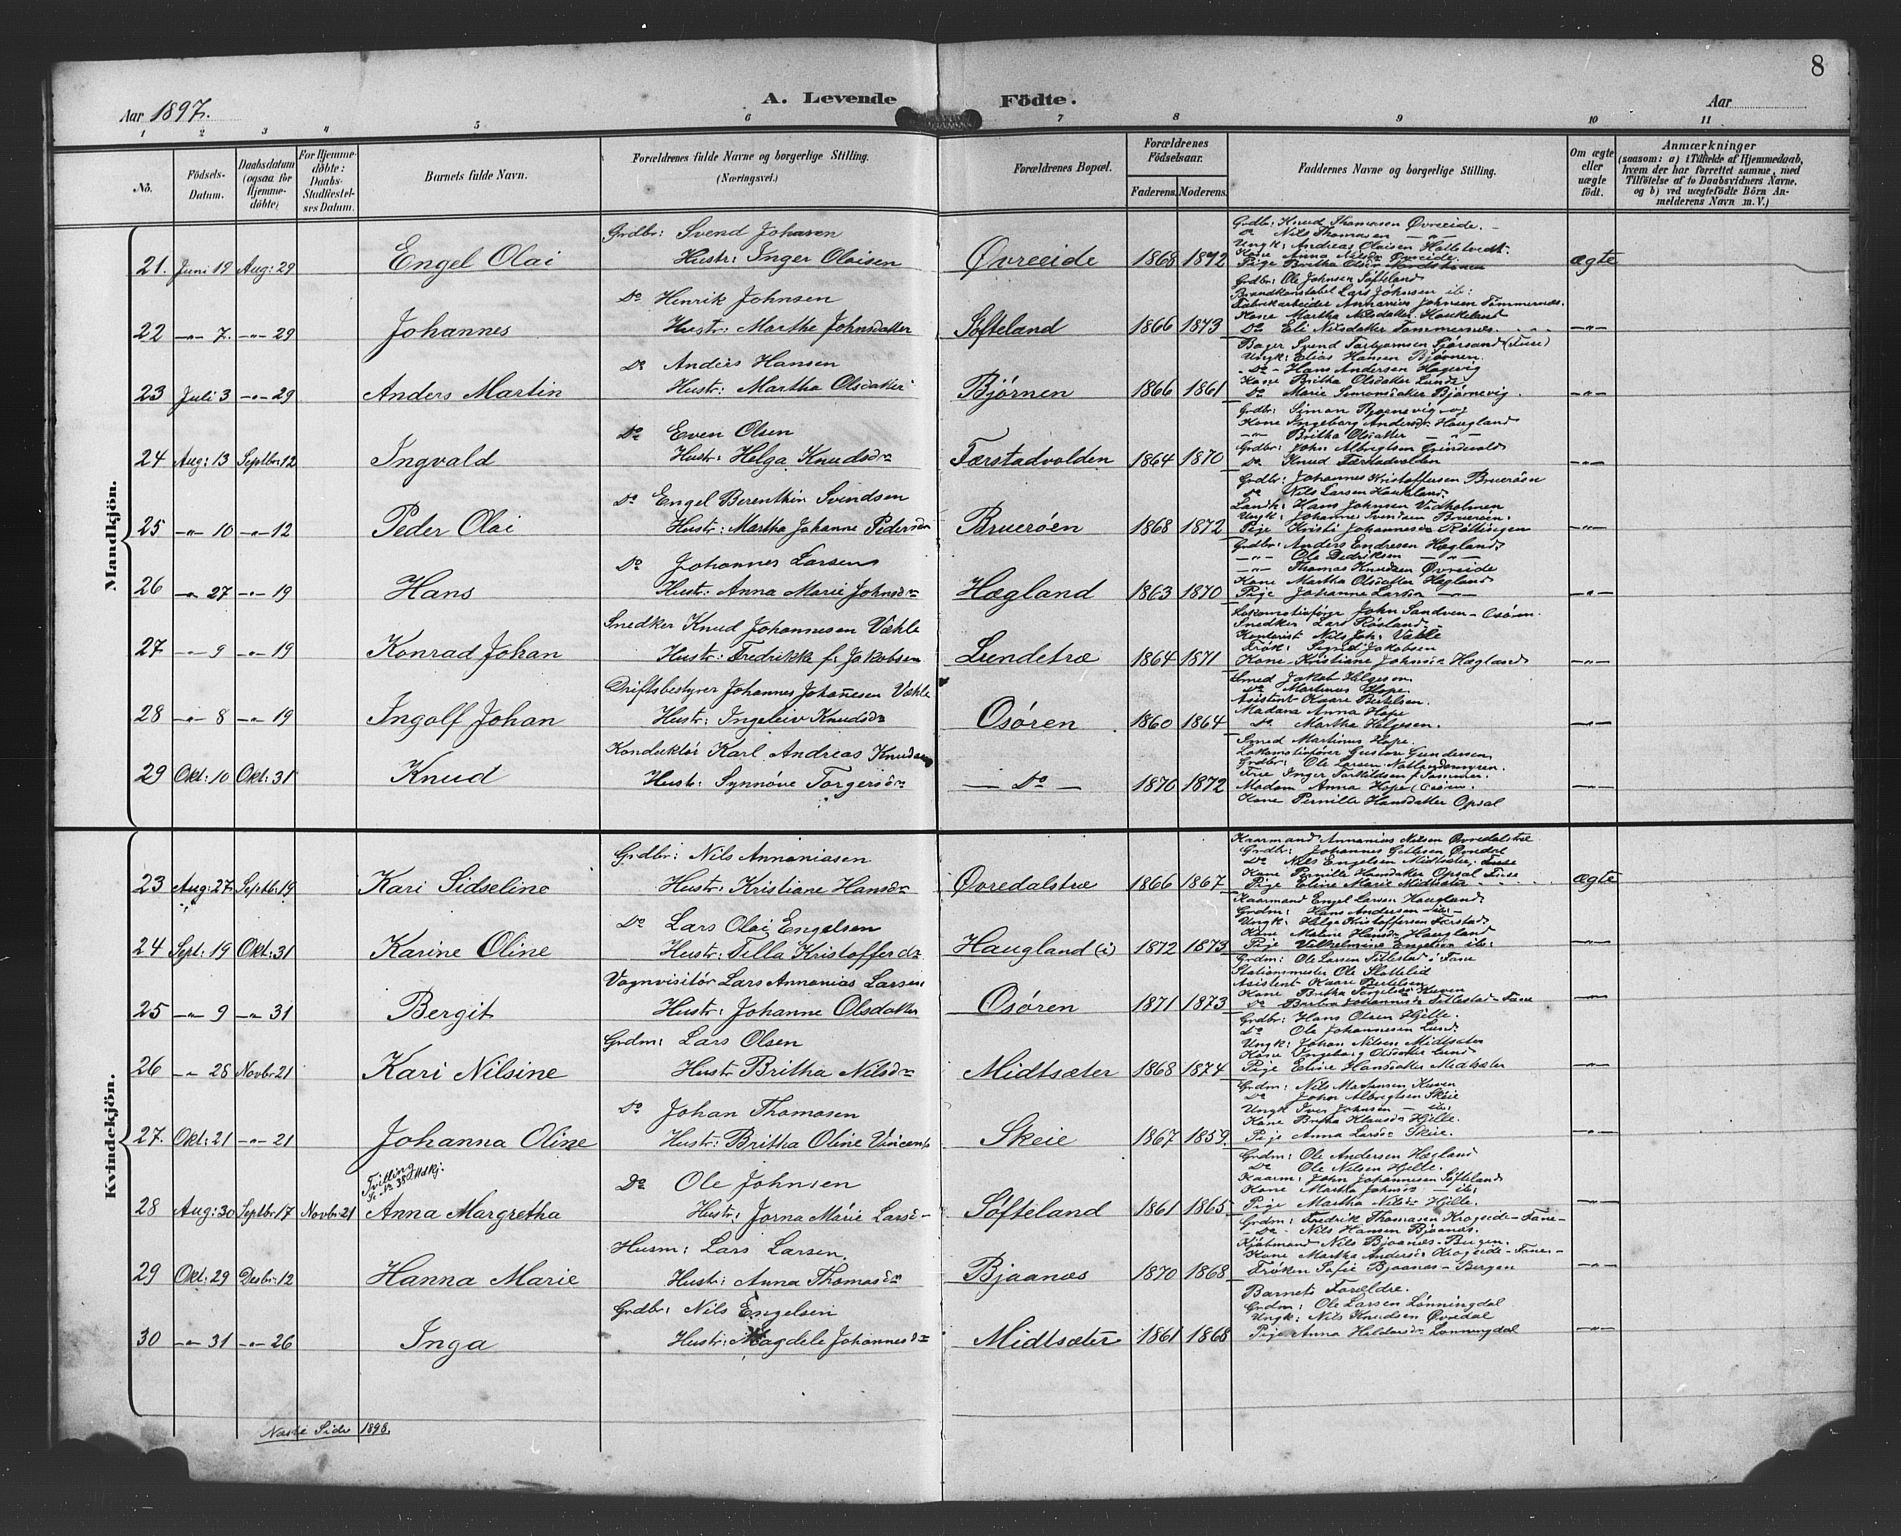 8
Aar 1897. A. Levende Födte. Aar
1 2 3 4 5 6 7 8 9 10 11
No. Födsels-Datum. Daabsdatum (ogsaa for Hjemmedöbte) For Hjemmedöbte: Daabs-Stadfæstelses Datum. Barnets fulde Navn. Forældrenes fulde Navne og borgerlige Stilling. (Næringsvei.) Forældrenes Bopæl. Forældrenes Födselsaar. Faderens. Moderens. Faddernes Navne og borgerlige Stilling. Om ægte eller uægte födt. Anmærkninger (saasom: a) i Tilfælde af Hjemmedaab, hvem der har forrettet samme, med Tilförelse af to Daabsvidners Navne, og b) ved uægtefödte Börn Anmelderens Navn m. V.)
Mandkjön.
Grdbr: Svend Johnsen
21. Juni 19 Aug: 29 Engel Olai Hustr: Inger Olaisen Øvreeide 1868 1872 ægte
Grdbr: Knud Thomassen Øvreeide.
Do Nils Thomassen
Ungk: Andreas Olaisen Hatletvedt
Kone Anna Nilsdr Øvreeide.
Do Henrik Johnsen
22 -"- 7. -"- 29 Johannes Hustr: Marthe Johnsdatter Søfteland 1866 1873 -"-
Grdbr: Ole Johnsen Søfteland
Brandkonstabel Lars Johnsen ib:
Fabrikarbeider Annanias Johnsen Tømmernæs.
Kone Martha Nilsdatter Haukeland
Do Eli Nilsdatter Tømmernæs.
Do Anders Hansen
23 Juli 3 -"- 29 Anders Martin Hustr: Martha Olsdatter Bjørnen 1866 1861 -"-
Ungk: Elias Hansen Bjørnen.
-Do- Hans Andersen Hagevig
Kone Britha Olsdatter Lunde
Do Marie Simonsdatter Bjørnevig.
Do Even Olsen
24 Aug: 13 Septbr: 12 Ingvald Hustr: Helga Knudsdr Færstadvolden 1864 1870 -"-
Grdbr: Simon Bjørnevig og
Kone Ingeborg Andersdr Haugland
-"- Britha Olsdatter -"-
Grdbr: John Albrigtsen Grindevold
Do Knud Færstadvolden
Do Engel Berenthin Svendsen
25 -"- 10 -"- 12 Peder Olai Hustr: Martha Johanne Pedersdr Bruerøen 1868 1872 -"-
Grdbr: Johannes Kristoffersen Bruerøen
Do Nils Larsen Haukeland.
Landh: Hans Johnsen Vedholmen
Ungk: Johannes Svendsen Bruerøen.
Pige Kristi Johannesdr Røttingen
Do Johannes Larsen
26 -"- 27 -"- 19 Hans Hustr: Anna Marie Johnsdr Hægland 1863 1870 -"-
Grdbr: Anders Endresen Hægland
-"- Ole Dedriksen -"-
-"- Thomas Knudsen Øvreeide
Kone Martha Olsdatter Hægland
Pige Johanne Larsdr -"-
Snedker Knud Johannesen Væhle
27 -"- 9 -"- 19 Konrad Johan Hustr: Fredrikke f: Jakobsen Lundetræ 1864 1871 -"-
Lokomotivfører John Sandven-Osören.
Snedker Lars Røsland
Kontorist Nils Joh: Væhle
Frök: Signe Jakobsen
Kone Kristiane Johnsdr Hægland
Driftsbestyrer Johannes Johannesen Væhle
28 -"- 8 -"- 19 Ingolf Johan Hustr: Ingeleiv Knudsdr Osøren 1860 1864 -"-
Smed Jakob Helgesen
Do Martinus Hope.
Asistent Kaare Bertelsen.
Madam Anna Hope
Do Martha Helgesen.
Konduktör Karl Andreas Knudsen
29 Okt: 10 Okt: 31 Knud Hustr: Synnöve Torgersdr -Do- 1870 1872 -"-
Smed Martinus Hope.
Lokomotivfører Gustav Gundersen
Grdbr: Ole Larsen Natlandsmyren.
Madam Anna Hope (Osören.
Kone Pernille Hansdatter Opsal
Kvindekjön.
Grdbr: Nils Annaniasen
23 Aug: 27 Septbr: 19 Kari Sidseline Hustr: Kristiane Hansdr Øvredalstræ 1866 1867 ægte
Kaarmand Annanias Nilsen Øvredalstræ
Grdbr: Johannes Gitlesen Øvredal
Do Nils Engelsen Midtsæter: Fuse
Kone Pernille Hansdatter Opsal Fuse
Pige Eline Marie Midtsæter
Do Lars Olai Engelsen
24 Sept: 19 Okt: 31 Karine Oline Hustr: Tilla Kristofferdr Haugland (i) 1872 1873 -"-
Kaarmand Engel Larsen Haugland
Grdm: Hans Andersen -ib:-
Ungk: Helge Kristoffersen Færstad
Kone Malene Hansdr Haugland
Pige Vilhelmine Engelsen ib:
Vognvisitör Lars Annanias Larsen
25 -"- 9 -"- 31 Bergit Hustr: Johanne Olsdatter Osøren 1871 1873 -"-
Grdm: Ole Larsen Titlestad i Fane
Stationmester Ole Slottelid
Asistent Kaare Bertelsen
Do Barbro Johannesdr Titlestad-Fane
Grdm: Lars Olsen
26 -"- 28 Novbr: 21 Kari Nilsine Hustr Britha Nilsdr Midtsæter 1868 1874 -"-
Grdbr: Hans Olsen Hjelle.
Do Ole Johannessen Lund
Ungk: Johan Nilsen Midtsæter
Kone Ingeborg Olsdatter Lund
Pige Eline Hansdatter Midtsæter
Do Johan Thomasen
27. Okt: 21 -"- 21 Johanna Oline Hustr: Britha Oline Vincents Skeie 1867 1859. -"-
Grdm: Nils Mortensen Kuven
Do John Albrigtsen Skeie
Ungk Iver Johnsen -ib:
Kone Britha Klausdr Hjelle.
Pige Anna Larsdr Skeie.
Tvilling
Se No 38 Mdkj.
Do Ole Johnsen
28 Aug: 30 Septbr: 17 Novbr: 21 Anna Margretha Hustr: Jorna Marie Larsd- Søfteland 1861 1865 -"-
Grdm: Ole Andersen Hægland
Do Ole Nilsen Hjelle.
Kaarm: John Johannessen Søfteland
Kone Martha Johnsdr -ib:
Pige Martha Nilsdr Hjelle.
Husm: Lars Larsen.
29 Okt: 29 Desbr: 12 Hanna Marie Hustr: Anna Thomasdr Bjaanæs 1870 1868 -"-
Grdm: Fredrik Thomasen Krogeide-Fane-
-Do- Nils Hansen Bjaanæs.
Kjöbmand Nils Bjaanæs-Bergen.
Kone Martha Andersdr Krogeide-Fane-
Frøken Sofie Bjaanæs-Bergen
Grdbr: Nils Engelsen
30 -"- 31 -"- 26 Inga Hustr: Magdele Johannesdr Midtsæter 1861 1868 -"-
Barnets Foreldre.
Grdm: Ole Larsen Lønningdal
Ungk: Nils Knudsen Øvredal
Pige Anna Haldorsdr Lønningdal
Næste Side 1898.